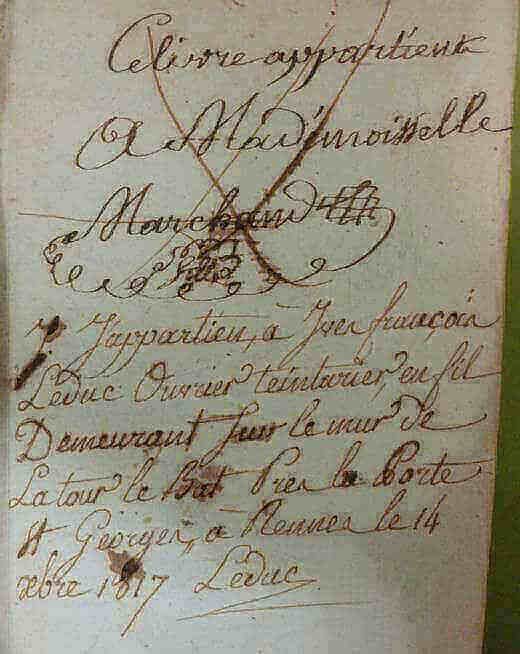 Celivre appartient
A Mademoiselle
Marchand
J'appartien, à Yves françois
Leduc Ouvrier teinturier, en fil
Demeurant sur le mur de
La tour le Bat Pres la Porte
St Georges, à Rennes le 14
xbre 1817 Leduc